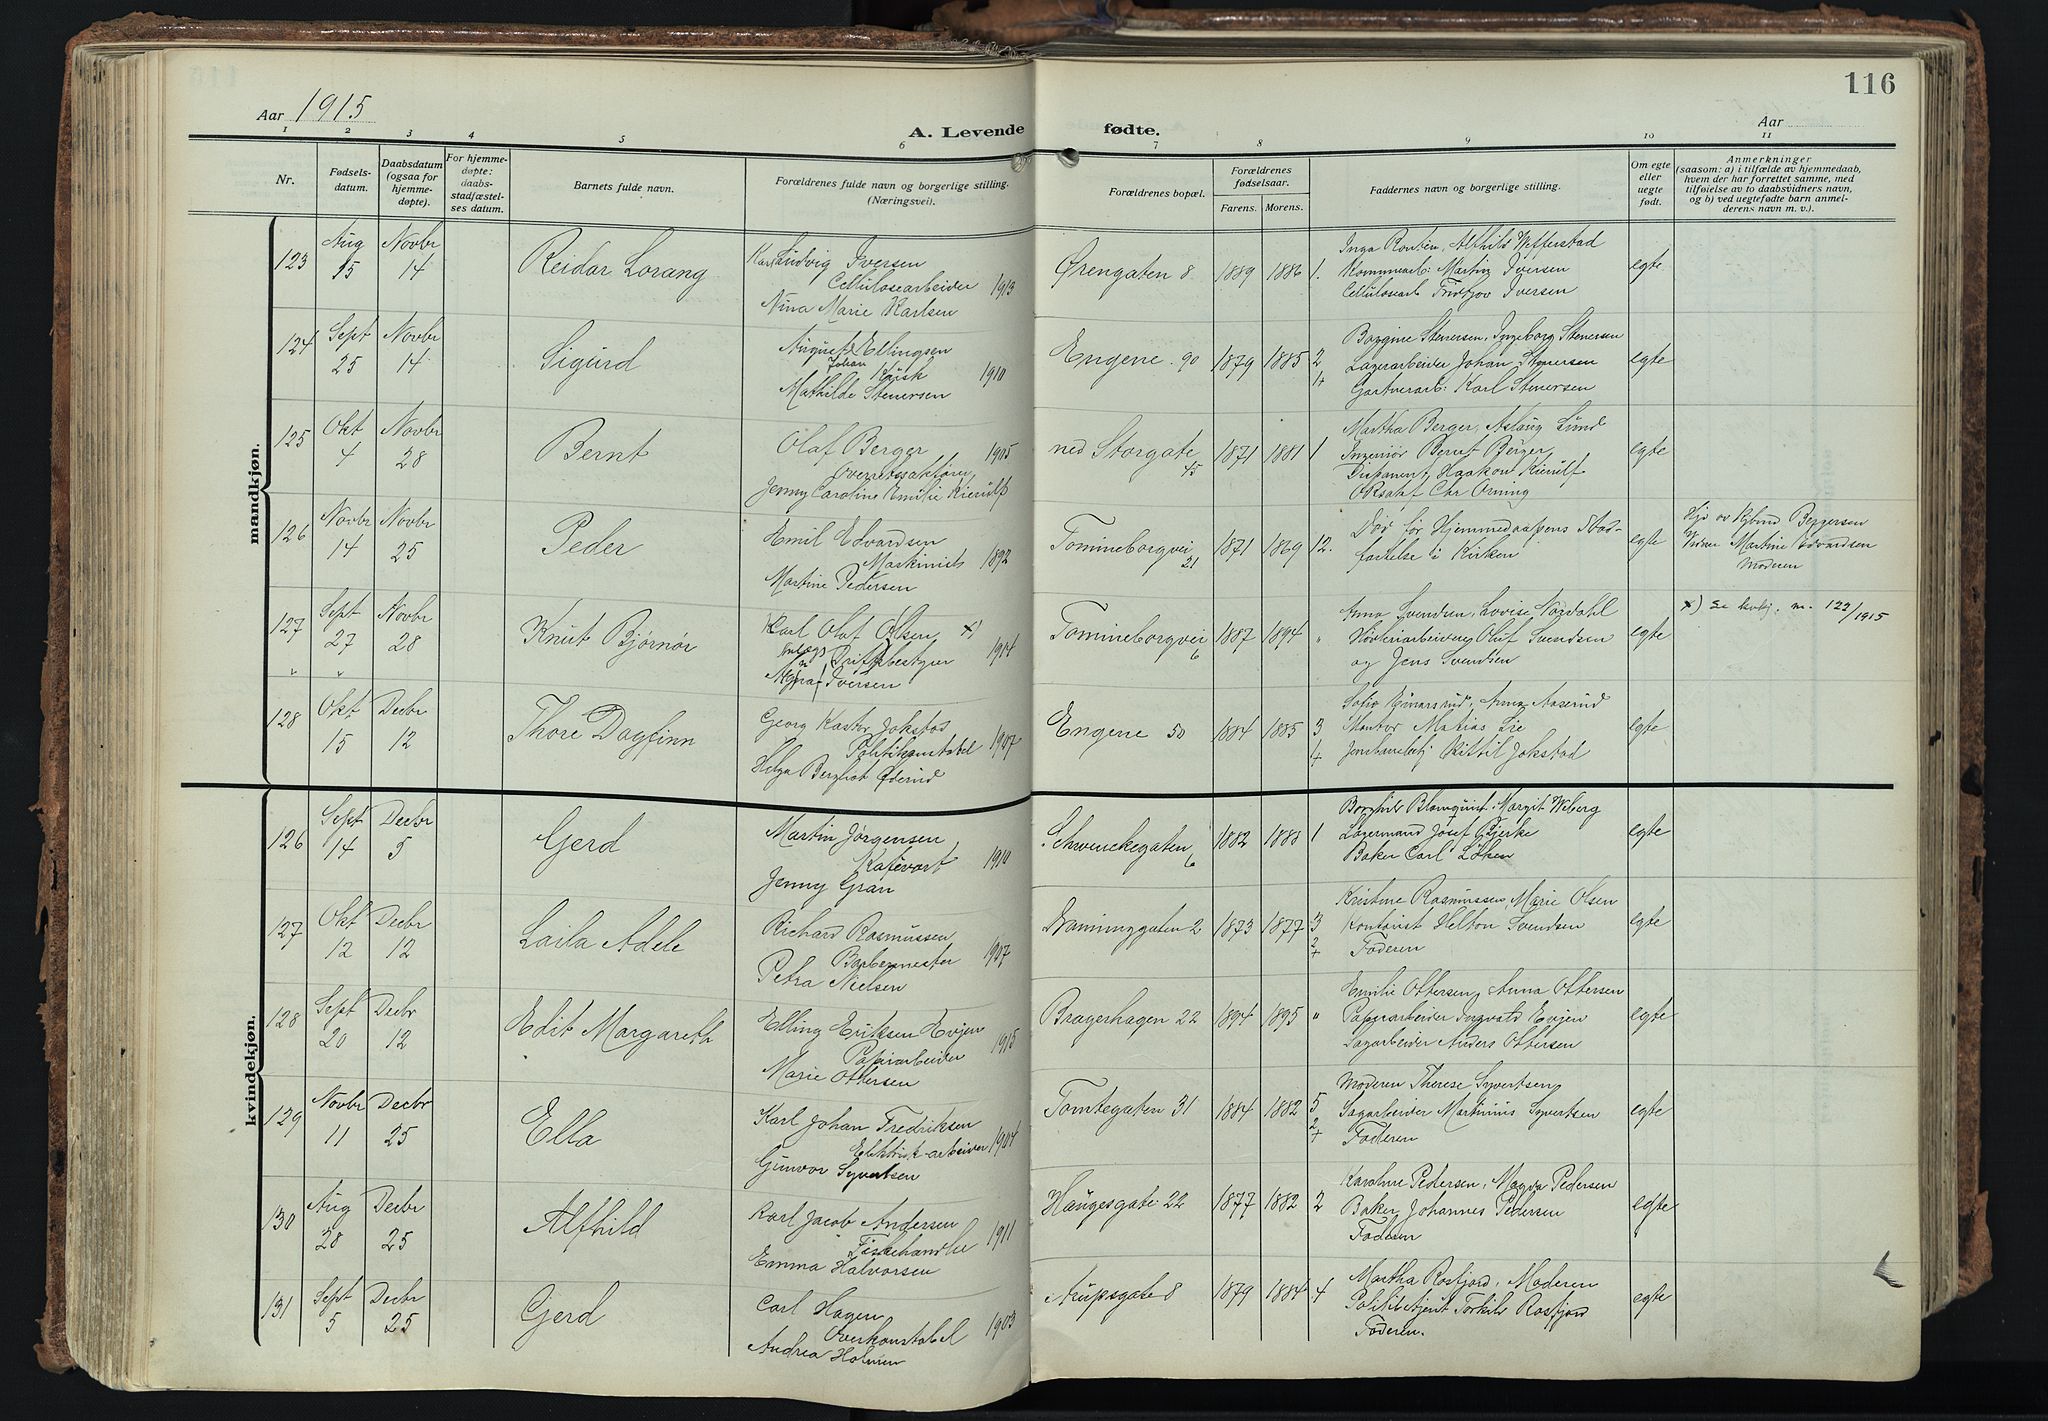 116
Aar 1915
A. Levende fødte.
Aar
1 2 3 4 5 6 7 8 9 10 11
Nr.
Fødsels-
datum.
Daabsdatum
(ogsaa for
hjemme-
døpte).
For hjemme-
døpte:
daabs-
stadfæstel-
ses datum.
Barnets fulde navn.
Forældrenes fulde navn og borgerlige stilling.
(Næringsvei).
Forældrenes bopæl.
Forældrenes
fødselsaar.
Farens. Morens.
Faddernes navn og borgerlige stilling.
Om egte
eller
uegte
født.
Anmerkninger
(saasom: a) i tilfælde av hjemmedaab,
hvem der har forrettet samme, med
tilføielse av to daabsvidners navn,
og b) ved uegtefødte barn anmel-
derens navn m. v.).
mandkjøn.
123 Aug 15 Novbr 14 Reidar Lorang
Karl Ludvig Iversen
Cellulosearbeider 1913
Nina Marie Karlsen
Ørengaten 8 1889 1886 1.
Inga Alfhild
Kommunearb: Martin Iversen
Cellulosearb Fridtjov Iversen
egte
124 Sept 25 Novbr 14 Sigurd
August Ellingsen
Johan Kusk 1910
Mathilde Stenersen
Engene 90 1879 1885 2
Borgine Stenersen, Ingeborg Stenersen
Lagerarbeider Johan Stenersen
Gartnerarb: Karl Stenersen
egte
125 Okt 4 Novbr 28 Bernt
Olaf Berger 1905
Overretssakfører
Jenny Caroline Emilie Kierulf
ned Storgate 45 1871 1881 1
Martha Berger, Aslaug Lund
Ingeniør Bernt Berger,
Disponent Haakon Kierulf
ORsakf Chr Orning
egte
126 Novbr 14 Novbr 25 Peder
Emil Edvardsen
Maskinist 1892
Martine Pedersen
Tomineborgvei 21 1871 1869 12.
Død før Hjemmedaapens Stad-
fæstelse i Kirken
egte
Hjd av Bergersen
Vidner Martine Edvardsen
Moderen
127 Sept 27 Novbr 28 Knut Bjørnør
Karl Olaf Olsen x)
Driftsbestyrer 1914
Agna Iversen
Tomineborgvei 6 1887 1894 "
Anna Svendsen, Lovise Nordahl
Olaf Svendsen
og Jens Svendsen
egte
x) Se 122/1915
128 Okt 15 Decbr 12 Thore Dagfinn
Georg Kastor Jokstad
Politikonstabel 1907
Helga Bergliot Øderud
Engene 50 1884 1885 3
Sofie Gunarsrud, Anna Aaserud
Matias Lie
Kittil Jokstad
egte
kvindekjøn.
126 Sept 14 Decbr 5 Gerd
Martin Jørgensen
Kafévert 1910
Jenny Gran
Schwenckegaten 6 1882 1883 1
Borghild Blomquist, Margit Wiberg
Lagermand Josef Bjerke
Baker Carl Løken
egte
127 Okt 12 Decbr 12 Laila Adele
Richard Rasmussen
Barbermester 1907
Petra Nielsen
Nanninggaten 2 1873 1877 3
Kristine Rasmussen Marie Olsen
Kontorist Helton Svendsen
Faderen
egte
128 Sept 20 Decbr 12 Edit Margareth
Elling Eriksen Evjen
Papirarbeider 1915
Marie Ottersen
Bragerhagen 22 1894 1895 "
Emilie Ottersen, Anna Ottersen
Papirarbeider Ingvald Evjen
Dagarbeider Anders Ottersen
egte
129 Novbr 11 Decbr 25 Ella
Karl Johan Fredriksen
Elektrisk-arbeider 1904
Gunvor Syvertsen
Tomtegaten 31 1884 1882 5
Moderen Therese Syvertsen
Sagarbeider Martinius Syvertsen
Faderen
egte
130 Aug 28 Decbr 25 Alfhild
Karl Jacob Andersen
Fiskehandler 1911
Emma Halvorsen
Haugesgate 22 1877 1882 2
Karoline Pedersen, Magda Pedersen
Baker Johannes Pedersen
Faderen
egte
131 Sept 5 Decbr 25 Gerd
Carl Hagen
Overkonstabel 1903
Andrea Holmen
Aupsgate 8 1879 1884 4
Martha Rosfjord, Moderen
Politibetjent Torkild Rosfjord
Faderen.
egte